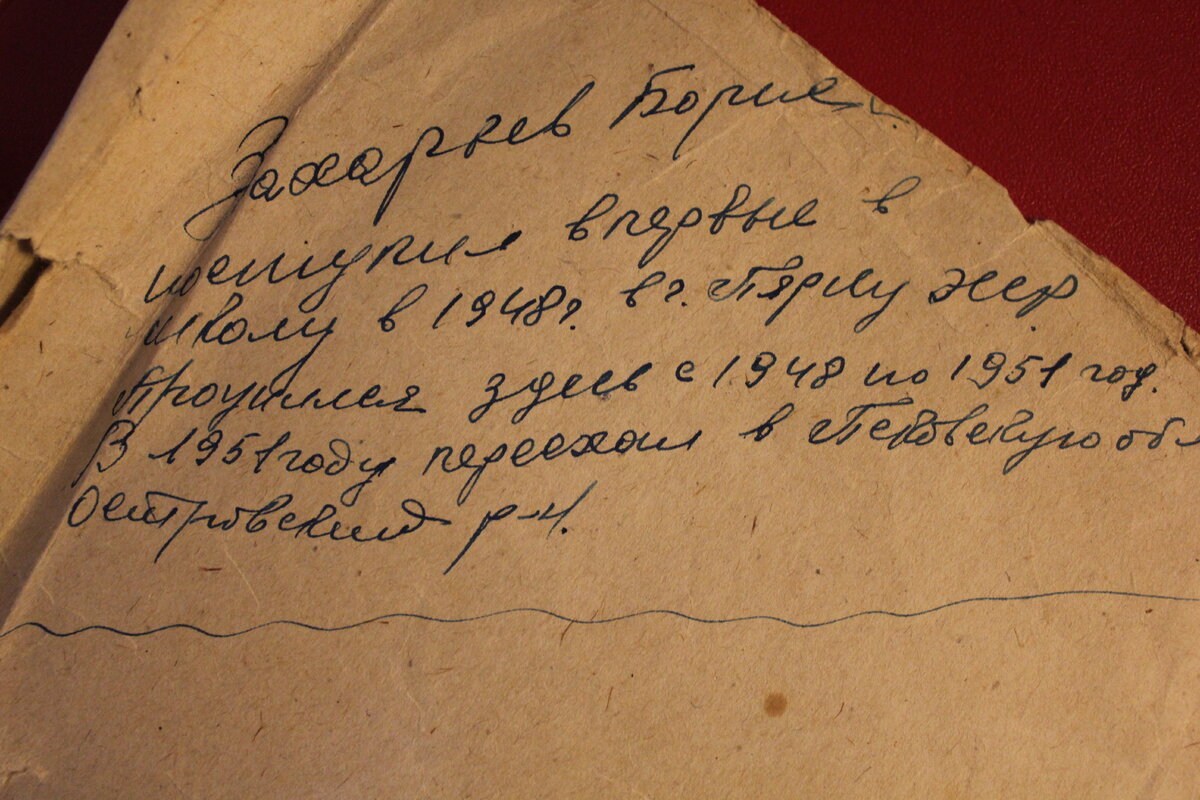 Захарьев Борис.
поступил впервые в
школу в 1948г. в г. Пярну эсср
Проучился здесь с 1948 по 1951 год.
В 1951 году переехал в Псковскую обл
Островский р-н.